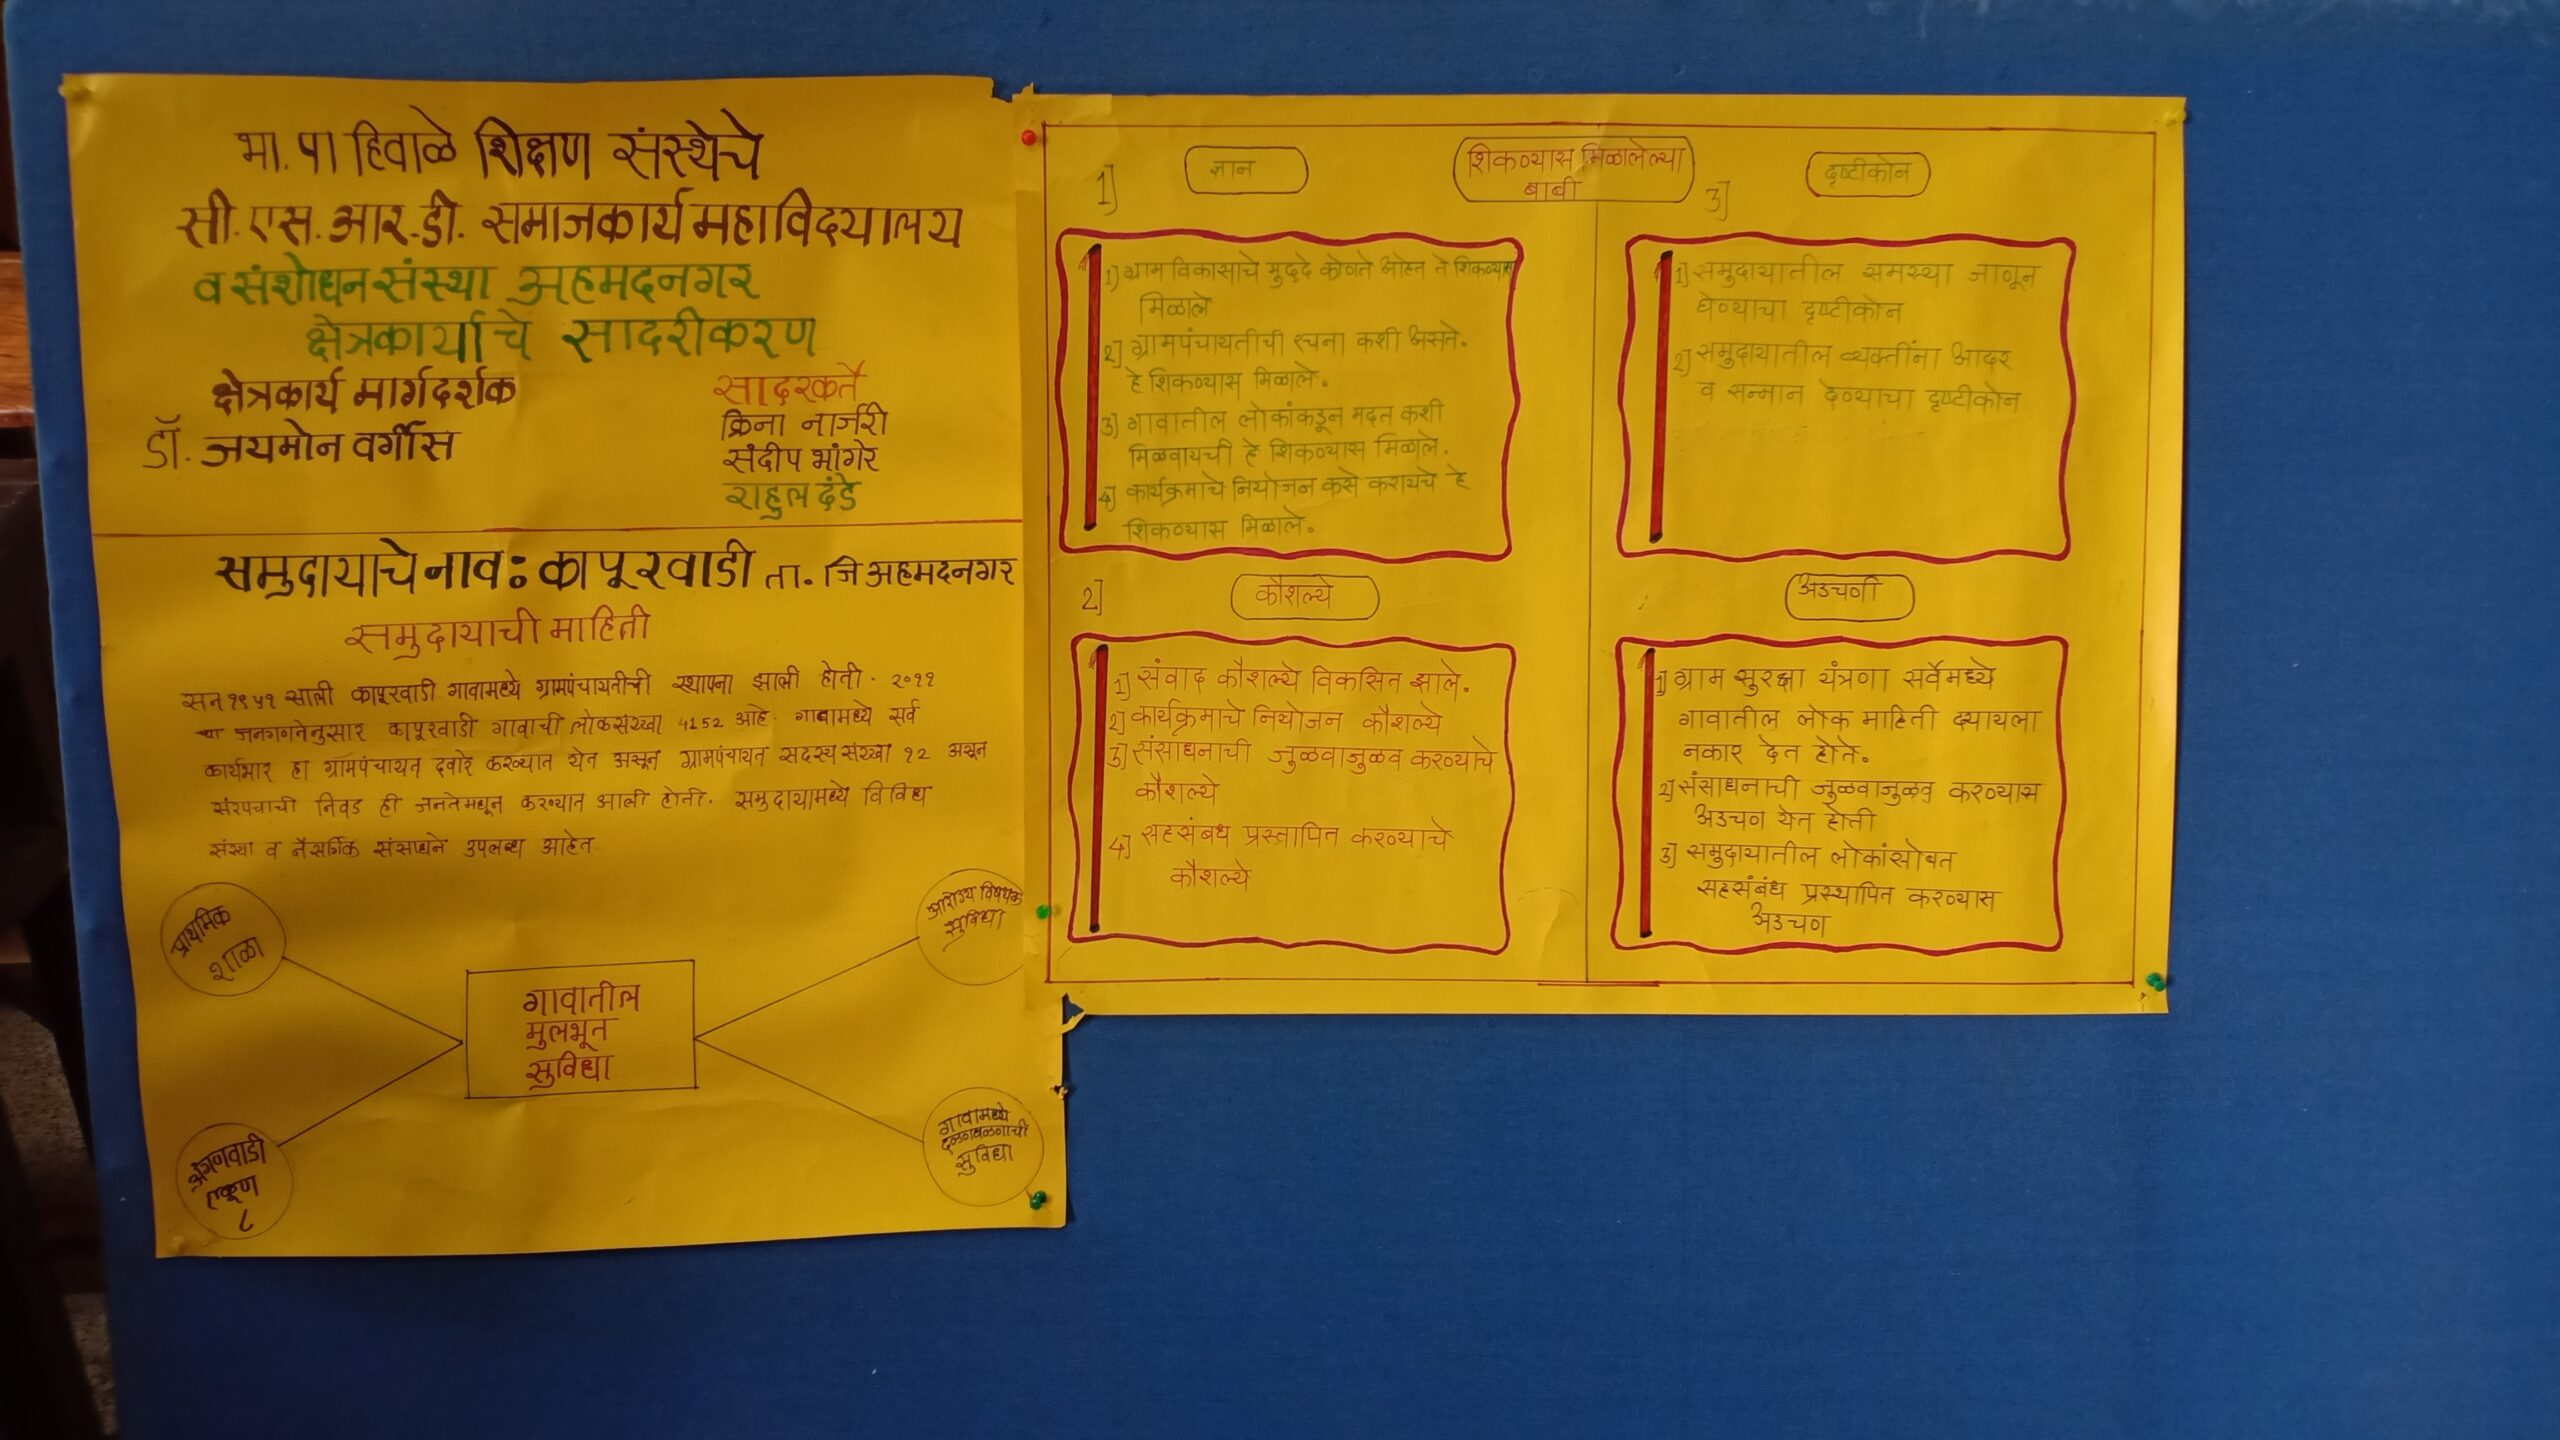 भा. पा हिवाळे शिक्षण संस्थेचे
सी. एस. आर. डी. समाजकार्य महाविदयालय
व संशोधन संस्था अहमदनगर
क्षेत्रकार्याचे सादरीकरण
क्षेत्रकार्य मार्गदर्शक
डॉ. जयमोन वर्गीस
सादरकर्ते
क्रिना नार्जरी
संदीप भांगेर
राहुल दंडे
समुदायाचे नाव: कापूरवाडी ता. जि अहमदनगर
समुदायाची माहिती
सन १९५१ साली कापूरवाडी गावामध्ये ग्रामपंचायतीची स्थापना झाली होती. २०११
च्या जनगणनेनुसार कापूरवाडी गावाची लोकसंख्या 4152 आहे. गावामध्ये सर्व
कार्यभार हा ग्रामपंचायत दवारे करण्यात येत असून ग्रामपंचायत सदस्य संख्या १२ असून
सरपंचाची निवड ही जनतेमधून करण्यात आली होती. समुदायामध्ये विविध
संस्था व नैसर्गिक संसाधने उपलब्ध आहेत.
प्राथमिक
शाळा
आरोग्य विषयक
सुविधा
गावातील
मुलभूत
सुविधा
अंगणवाडी
एकूण
८
गावामध्ये
दळणवळणाची
सुविधा
शिकण्यास मिळालेल्या
बाबी
1] ज्ञान
1) ग्रामविकासाचे मुद्दे कोणते आहेत ते शिकण्यास
मिळाले
2] ग्रामपंचायतीची रचना कशी असते.
हे शिकण्यास मिळाले.
3] गावातील लोकांकडून मदत कशी
मिळवायची हे शिकण्यास मिळाले.
4] कार्यक्रमाचे नियोजन कसे करायचे हे
शिकण्यास मिळाले.
2] कौशल्ये
1] संवाद कौशल्ये विकसित झाले.
2] कार्यक्रमाचे नियोजन कौशल्ये
3] संसाधनाची जुळवाजुळव करण्याचे
कौशल्ये
4] सहसंबध प्रस्तापित करण्याचे
कौशल्ये
3] दृष्टीकोन
1] समुदायातील समस्या जाणून
घेण्याचा दृष्टीकोन
2] समुदायातील व्यक्तींना आदर
व सन्मान देण्याचा दृष्टीकोन
अडचणी
1] ग्राम सुरक्षा यंत्रणा सर्वेमध्ये
गावातील लोक माहिती दयायला
नकार देत होते.
2] संसाधनाची जुळवाजुळव करण्यास
अडचण येत होती
3] समुदायातील लोकांसोबत
सहसंबंध प्रस्थापित करण्यास
अडचण